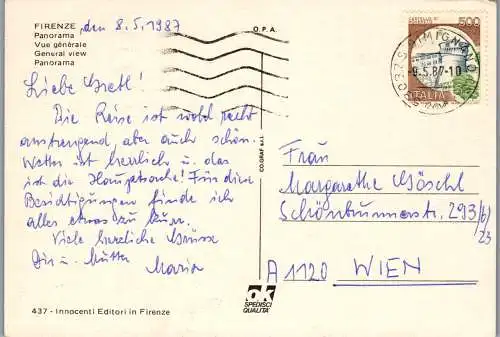 FIRENZE, den 8.5.1987
Panorama
Vue générale
General view
Panorama
O.P.A.
500
ITALIA
S. GIMIGNANO
-9.5.87-10
Liebe Gretl!
Die Reise ist wohl recht
anstrengend, aber auch schön.
Wetter ist herrlich u. das
ist die Hauptsache! Für die
Besichtigungen finde ich
alles etwas zu kurz.
Viele herzliche Grüsse
Dir u. Mutti
Maria
CO.GRAF s.r.l.
Frau
Margarethe Göschl
Schönbrunnerstr. 293/6/
23
A 1120 WIEN
ok
SPEDISCI
QUALITA'
437 - Innocenti Editori in Firenze